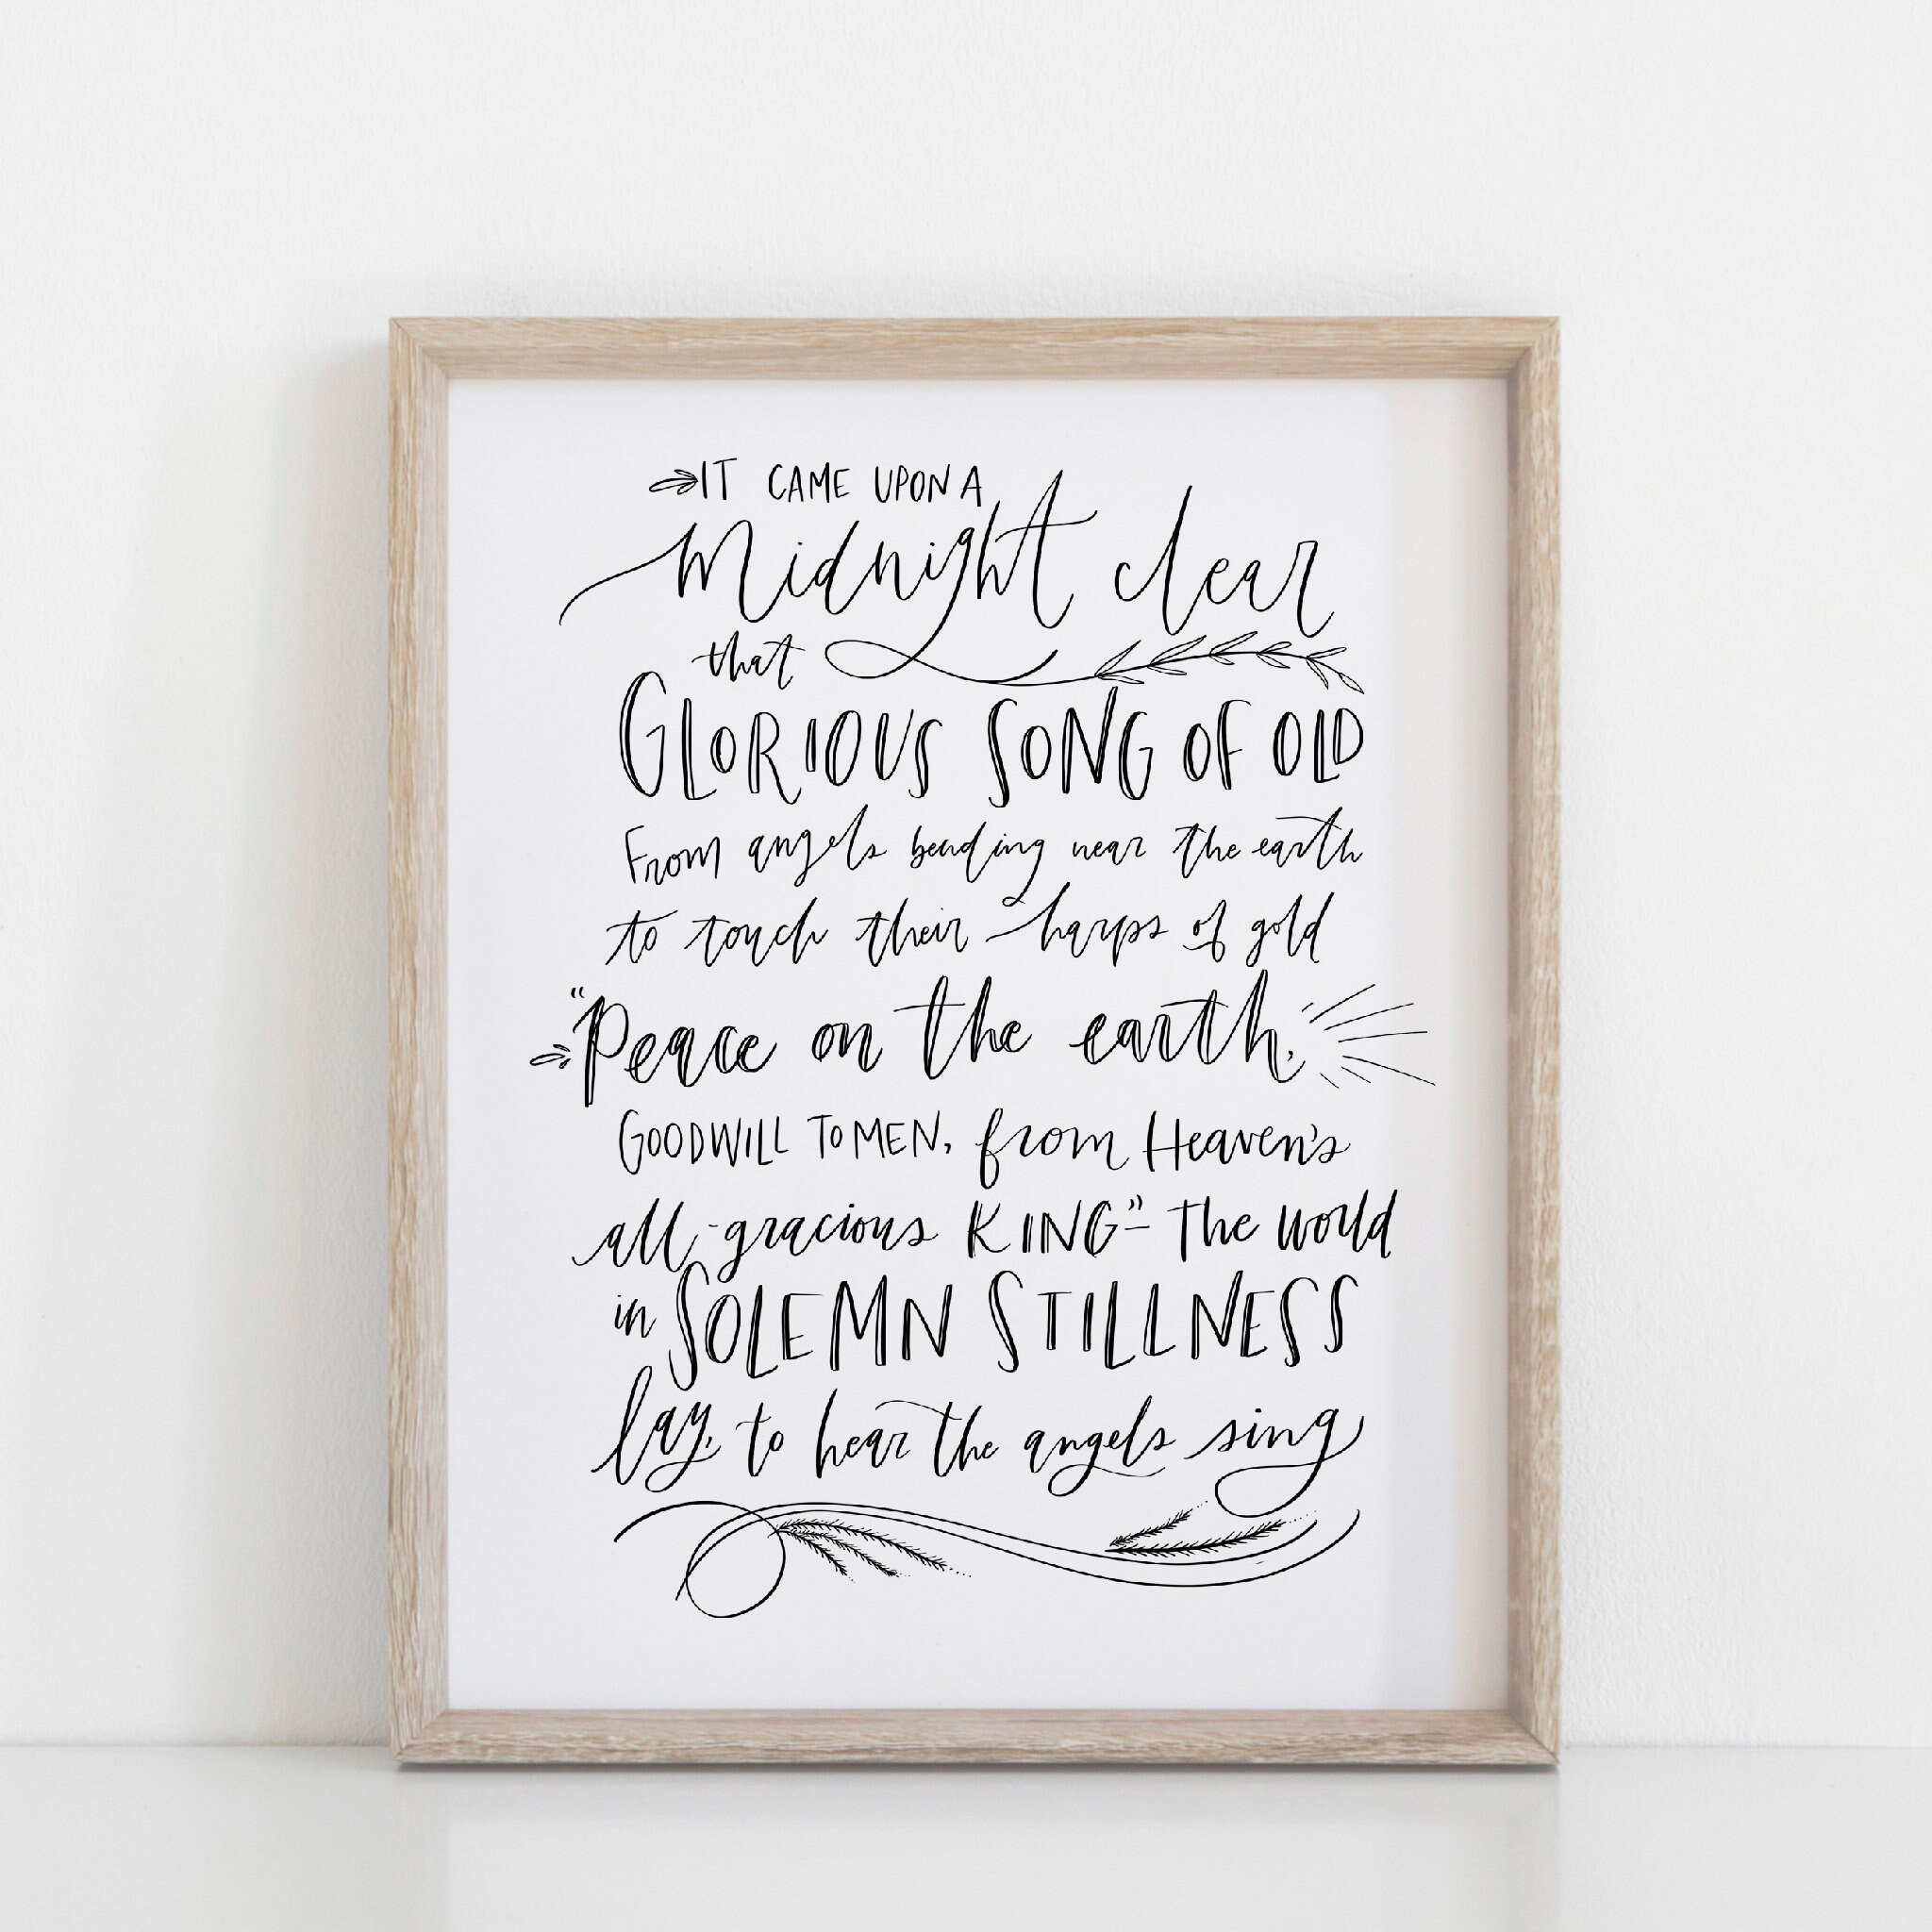 IT CAME UPON A
Midnight clear
that
GLORIOUS SONG OF OLD
From angels bending near the earth
to touch their harps of gold
"Peace on the earth,
GOODWILL TO MEN, from Heaven's
all-gracious KING" - The world
in SOLEMN STILLNESS
lay, to hear the angels sing